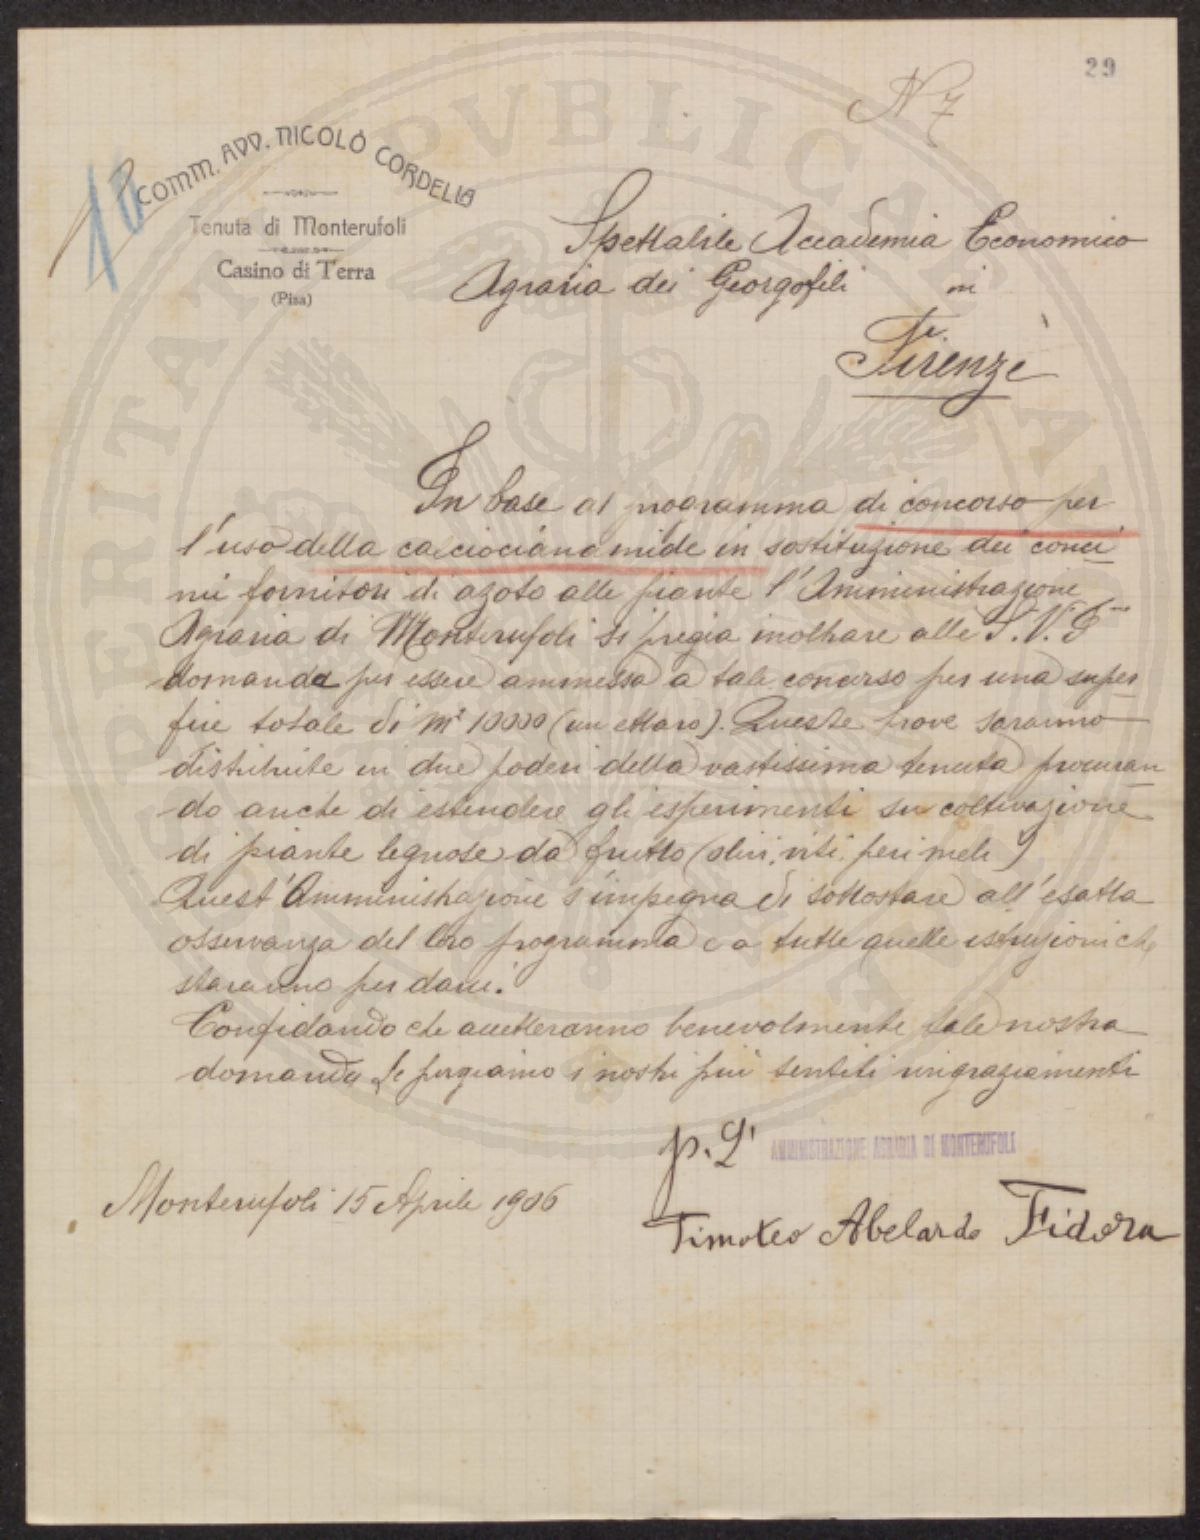 29
N 7
10
COMM. AVV. NICOLÒ CORDELIA
Tenuta di Monterufoli
Casino di Terra
(Pisa)
Spettabile Accademia Economico
Agraria dei Georgofili in
Firenze
In base al programma di concorso per
l'uso della calciocianamide in sostituzione dei conci
mi fornitori di azoto alle piante l'Amministrazione
Agraria di Monterufoli si pregia inoltrare alle S.V.
domanda per essere ammessa a tale concorso per una super
fice totale di m² 10000 (un ettaro). Queste prove saranno
distribuite in due poderi della vastissima tenuta procuran
do anche di estendere gli esperimenti su coltivazione
di piante legnose da frutto (olivi, viti, peri meli)
Quest'Amministrazione s'impegna di sottostare all'esatta
osservanza del loro programma e a tutte quelle istruzioni che
staranno per darci.
Confidando che accetteranno benevolmente tale nostra
domanda Le porgiamo i nostri più sentiti ringraziamenti
p. L' AMMINISTRAZIONE AGRARIA DI MONTERUFOLI
Monterufoli 15 Aprile 1906
Timoteo Abelardo Fidora
PERITATI PVBLICAE